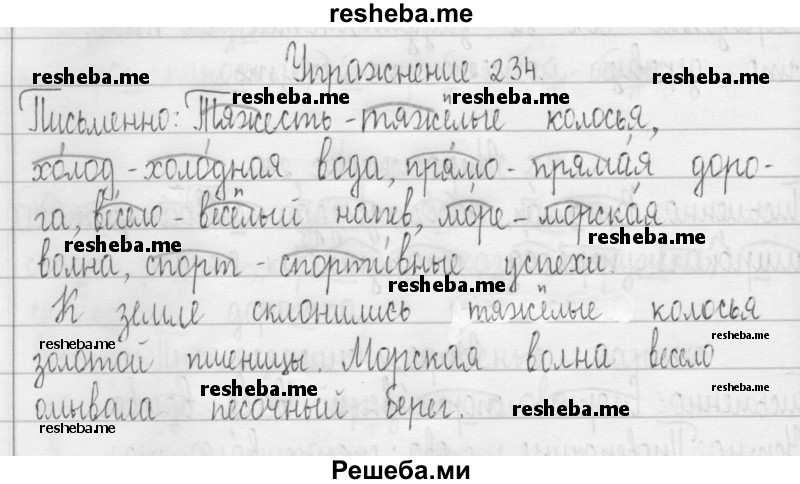 resheba.me
Упражнение 234.
resheba.me
resheba.me
resheba.me
resheba.me
Письменно: Тяжесть - тяжёлые колосья,
resheba.me
холод - холодная вода, прямо - прямая доро-
resheba.me
га, весело - весёлый напев, море - морская
resheba.me
resheba.me
волна, спорт - спортивные успехи.
resheba.me
К земле склонились тяжёлые колосья
resheba.me
resheba.me
золотой пшеницы. Морская волна весело
resheba.me
resheba.me
омывала песочный берег.
resheba.me
resheba.me
Решеба.ми